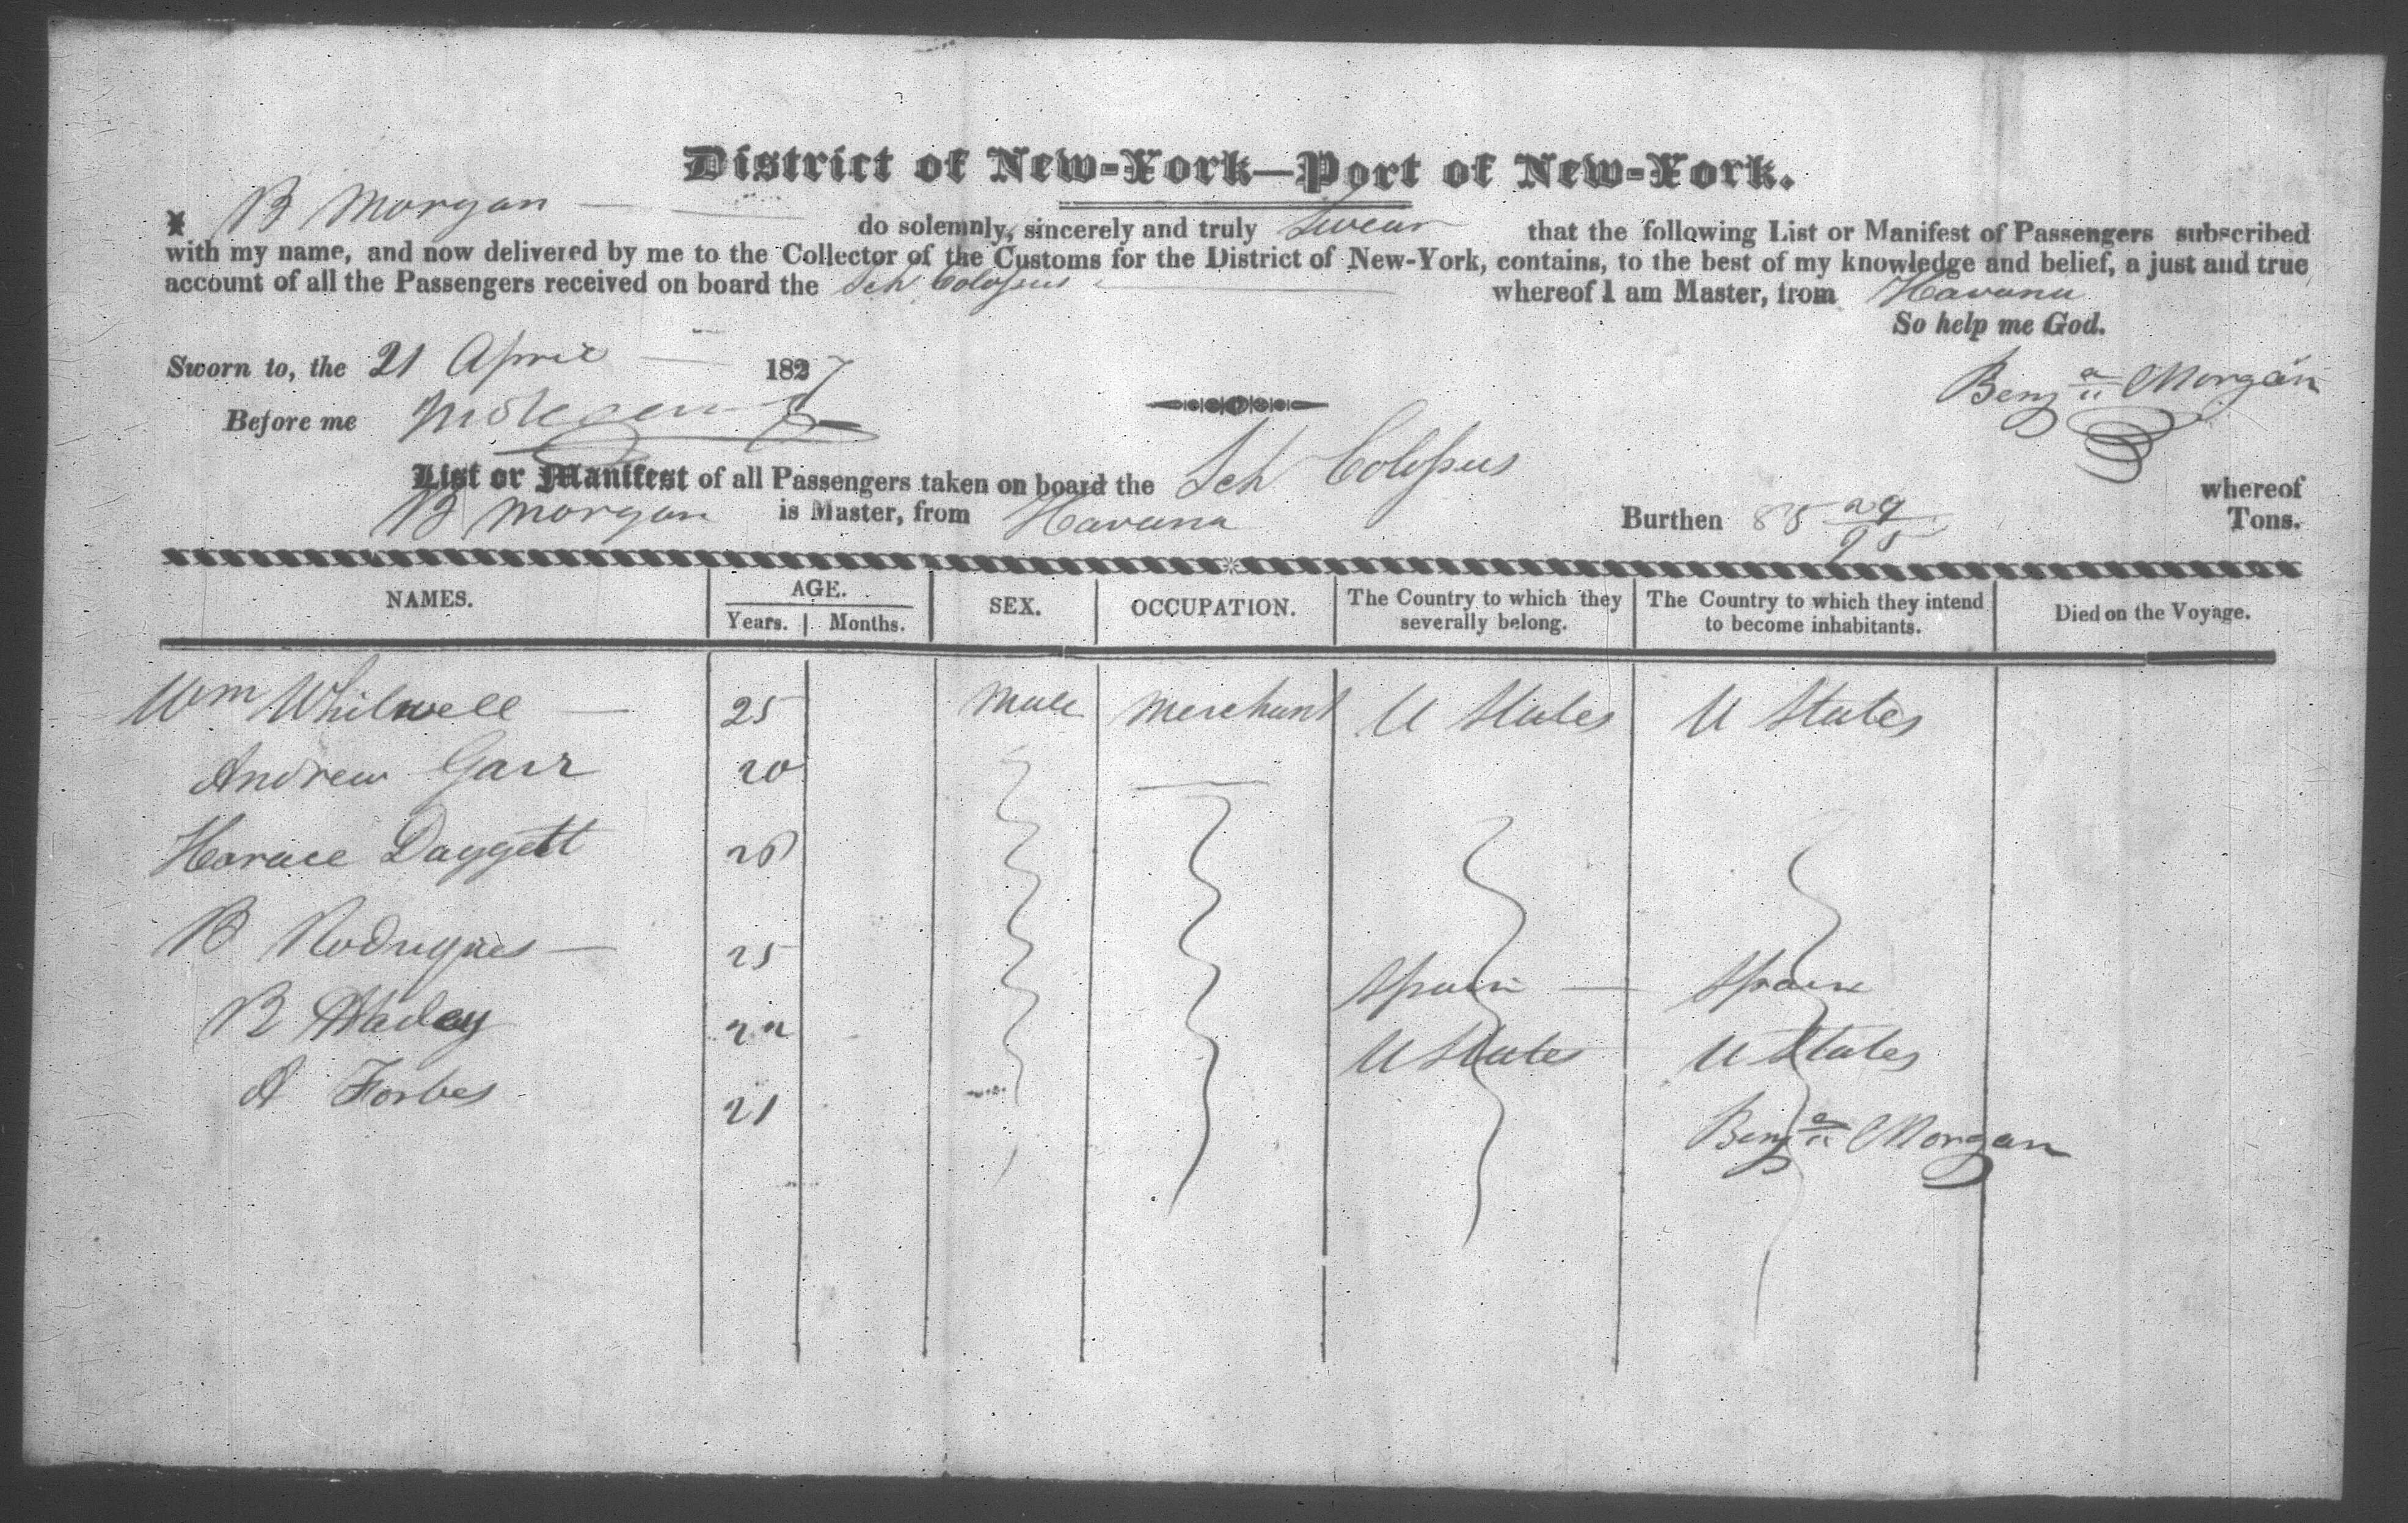 District of New-York—Port of New-York.
B Morgan do solemnly, sincerely and truly Swear that the following List or Manifest of Passengers subscribed
with my name, and now delivered by me to the Collector of the Customs for the District of New-York, contains, to the best of my knowledge and belief, a just and true
account of all the Passengers received on board the Sch Colossus whereof I am Master, from Havana
So help me God.
Sworn to, the 21 April 1827
Benja Morgan
Before me
List or Manifest of all Passengers taken on board the Sch Colossus whereof
B Morgan is Master, from Havana Burthen 85 29/95 Tons.
NAMES. AGE. SEX. OCCUPATION. The Country to which they severally belong. The Country to which they intend to become inhabitants. Died on the Voyage.
Years. Months.
Wm Whitwell 25 Male Merchant U States U States
Andrew Garr 20
Horace Daggett 26
B Rodrigues 25 Spain Spain
B 22 U States U States
A Forbes 21
Benja Morgan